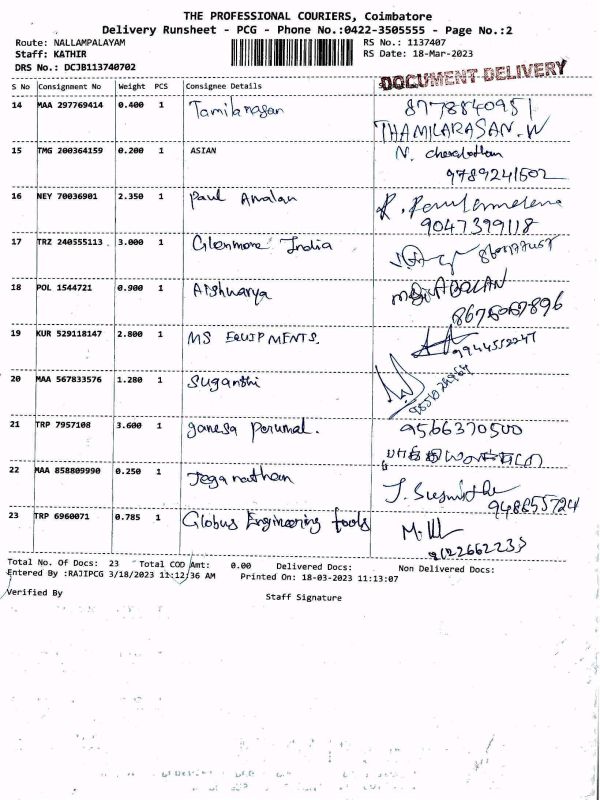 THE PROFESSIONAL COURIERS, Coimbatore
Delivery Runsheet - PCG - Phone No.:0422-3505555 - Page No.:2
Route: NALLAMPALAYAM RS No.: 1137407
Staff: KATHIR RS Date: 18-Mar-2023
DRS No.: DCJB113740702
DOCUMENT DELIVERY
S No Consignment No Weight PCS Consignee Details
14 MAA 297769414 0.400 1 Tamilarasan 8778840951
THAMILARASAN.W
15 TMG 200364159 0.200 1 ASIAN N.
9789241502
16 NEY 70036901 2.350 1 Paul Amalan R.
9047399118
17 TRZ 240555113 3.000 1 Glenmore India
18 POL 1544721 0.900 1 Aishwarya
19 KUR 529118147 2.800 1 MS EQUIPMENTS.
9944552247
20 MAA 567833576 1.280 1 Suganthi
21 TRP 7957108 3.600 1 ganesa Perumal. 9566370500
22 MAA 858809990 0.250 1 Jeganathan J.
23 TRP 6960071 0.785 1 Globus Engineering tools M.
Total No. Of Docs: 23 Total COD Amt: 0.00 Delivered Docs: Non Delivered Docs:
Entered By :RAJIPCG 3/18/2023 11:12:36 AM Printed On: 18-03-2023 11:13:07
Verified By Staff Signature